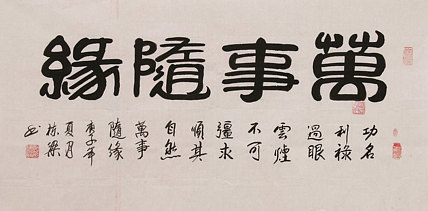 萬事隨緣
功名
利祿
過眼
雲煙
不可
彊求
順其
自然
萬事
隨緣
庚子年
夏月